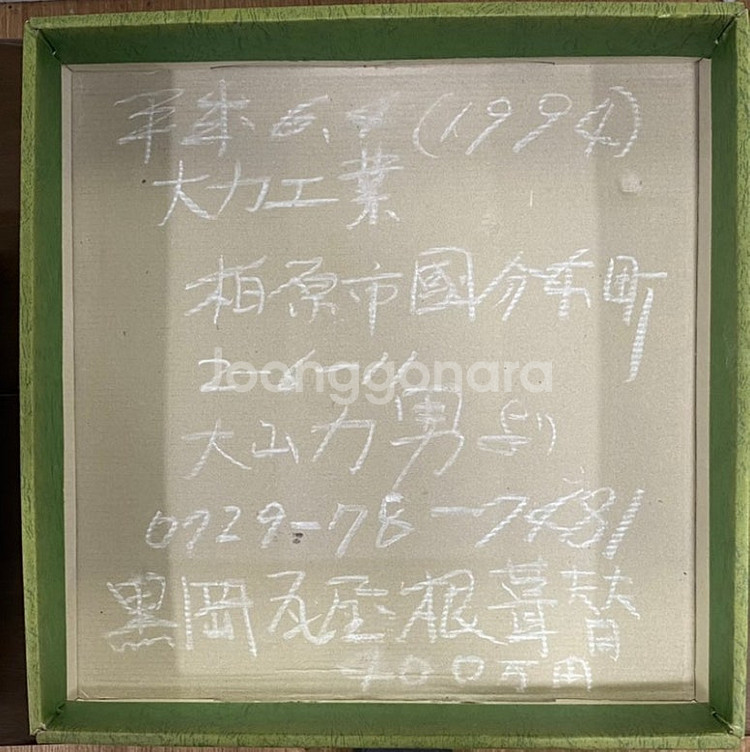 平成6.4(1994)
大力工業
柏原市國分東町
2-6-11
joonggonara
大山力男より
0729-78-7481
黒岡瓦屋根葺替
400万円